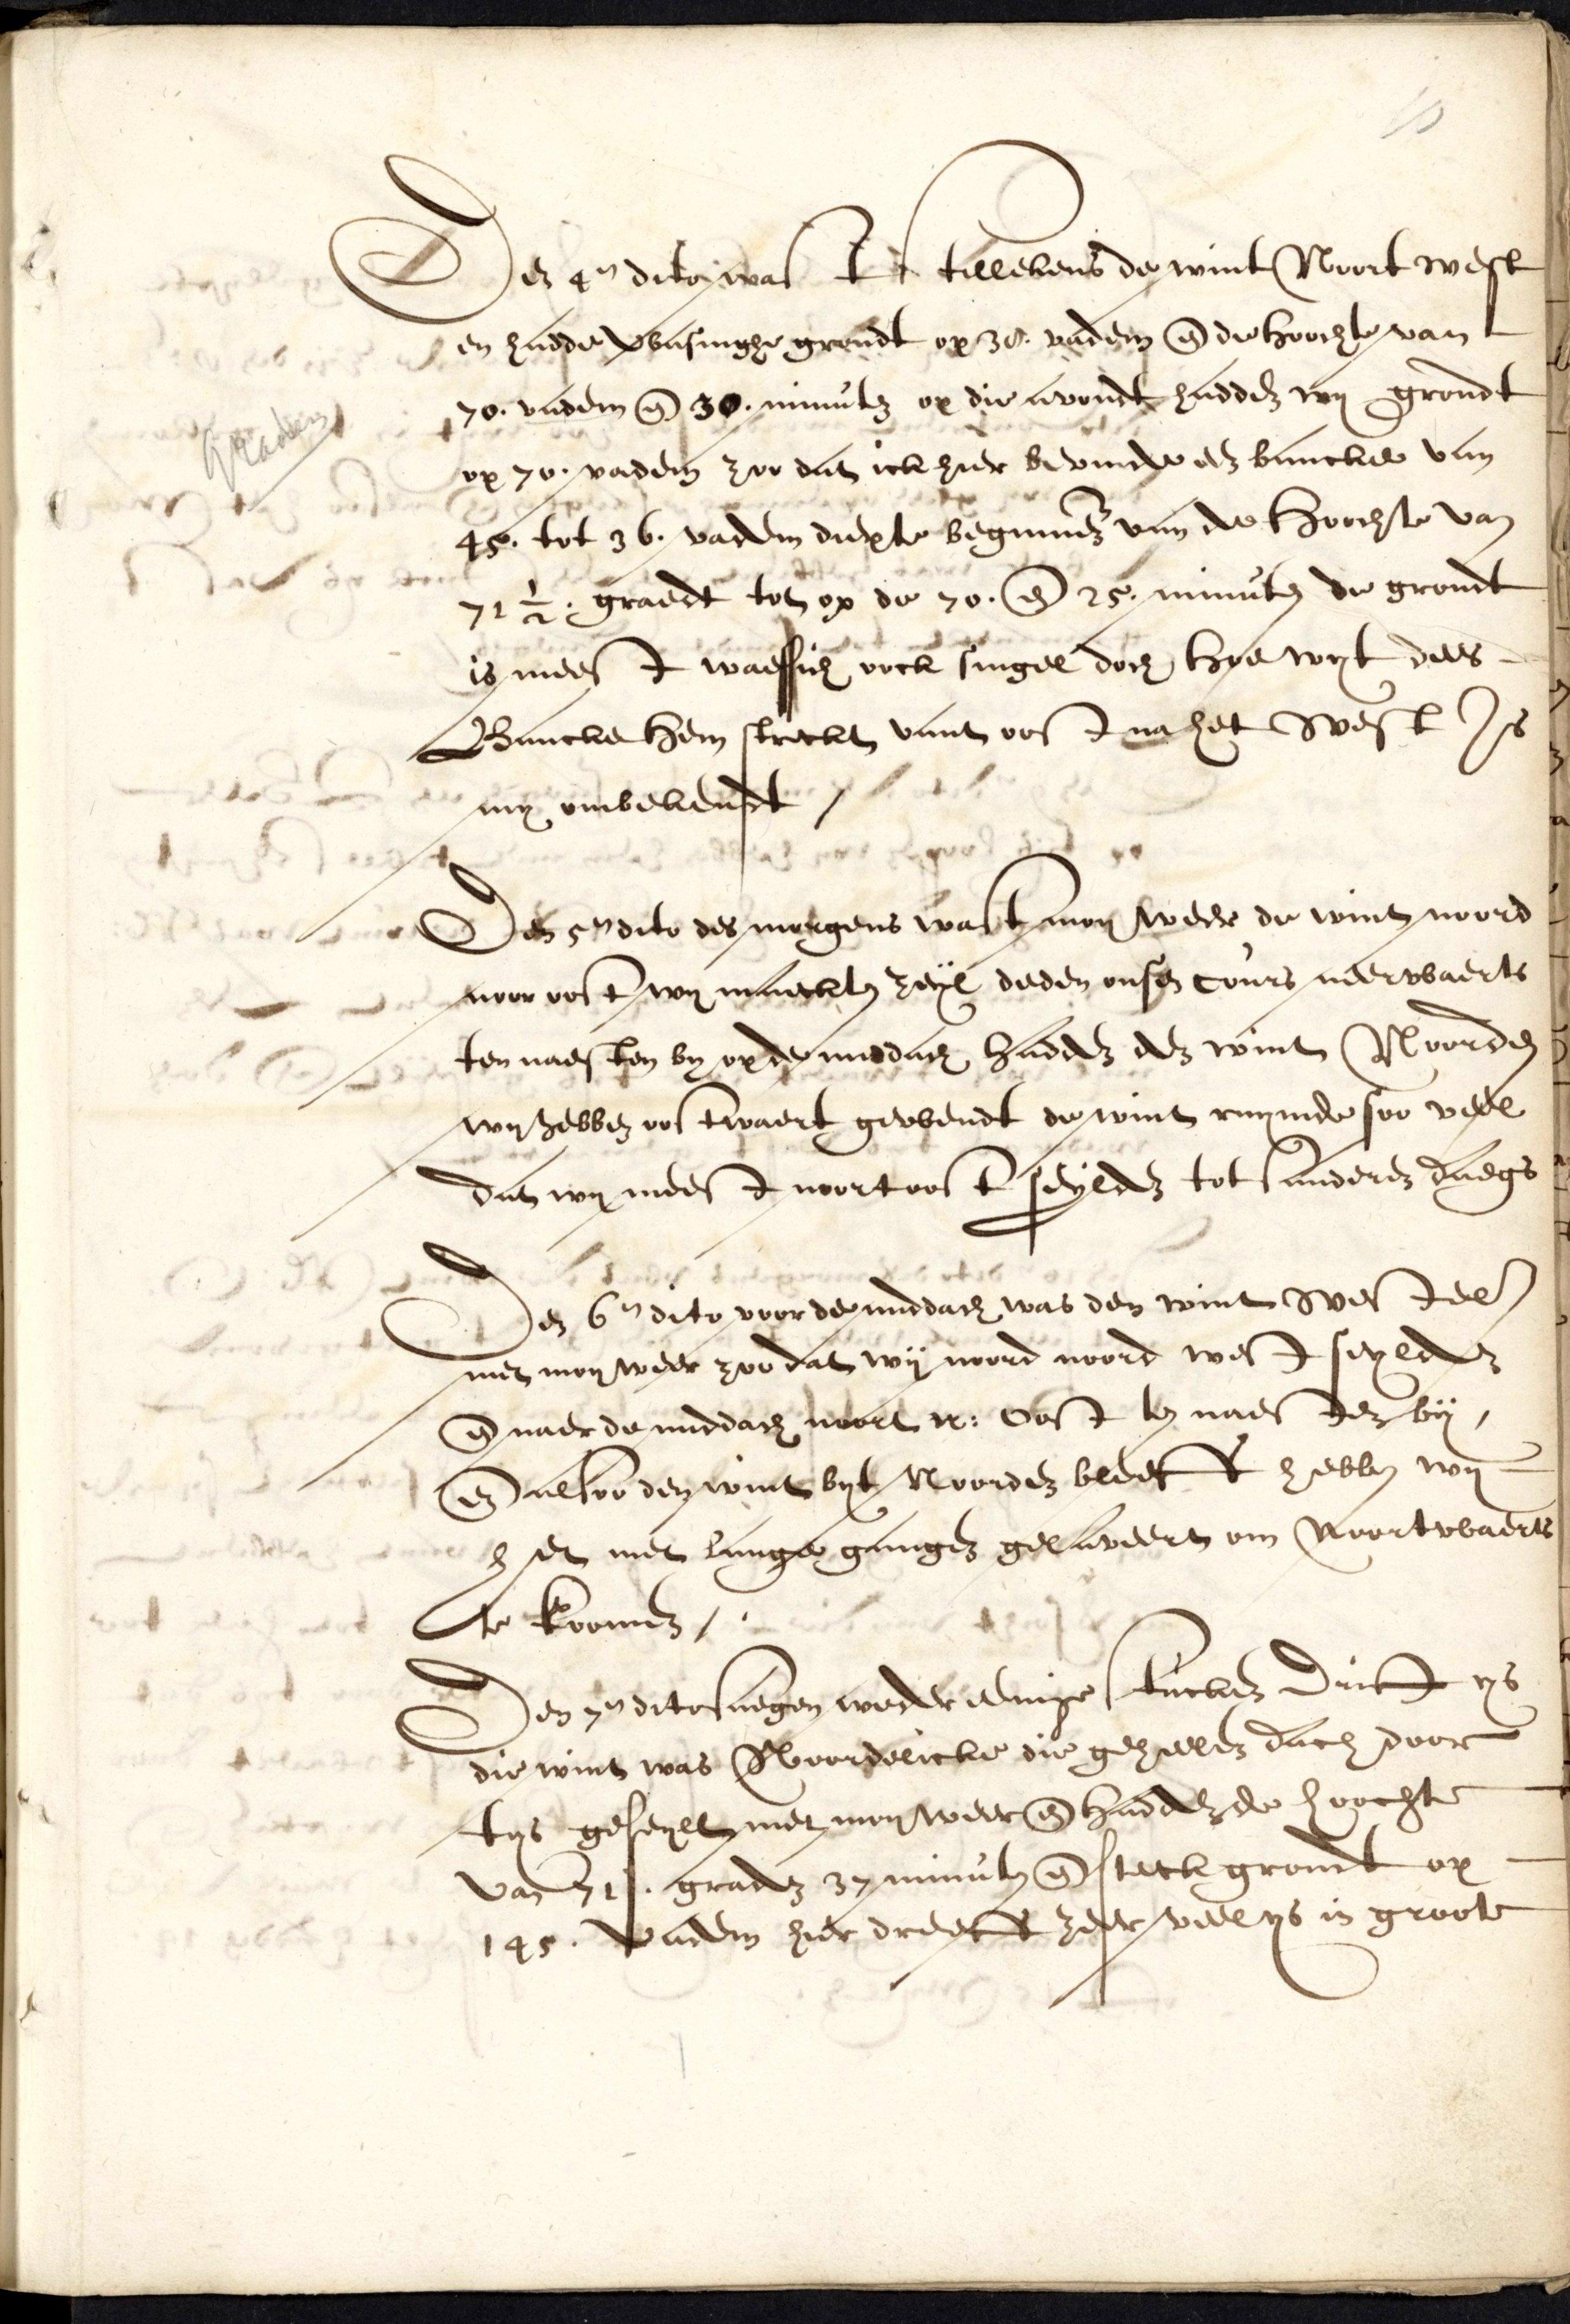 10
Den 4en dito was t stillekens de wint Noort west
en hadde wasinghe grondt op 38. vadem en de hoochte van
Graden
70. vadem en 30. minuten op die avondt hadden wy grondt
op 70. vadem zoo dat ick hier bevinde een bancke van
45. tot 36. vadem diepte beginnen van de hoochte van
71 1/2. graedt tot op de 70. en 25. minuten de grondt
is meest wassich oock singel doch hoe wyt dees
Bancke hem streckt vant oost na het West Is
my onbekendt /
Den 5en dito des morgens wast moy weder de wint noord
noor oost wy maeckten zeyl deden onsen cours neerwaerts
ten naesten by op de middach hadden den wint Noorden
wy hebben oostwaert gewendt de wint ruymde soo veel
dat wy meest noortoost seylden tot sanderen daegs
Den 6en dito voor de middach was den wint Westel
met moy weer zoo dat wij noord noord west seylden
en naer de middach noort n: Oost ten naesten bij,
En alsoo den wint byt Noorden bleeft hebben wy
het met lange gangen gelaveert om Noortwaerts
te koomen /.
Den 7en dito saegen weder eenige stucken Drift ys
die wint was Noordelicke die geheelen dach door
tys geseylt met moy weer en hadden de hoochte
van 71. graden 37 minuten en steck grondt op
145. vadem hier dreeft zeer veel ys in groote